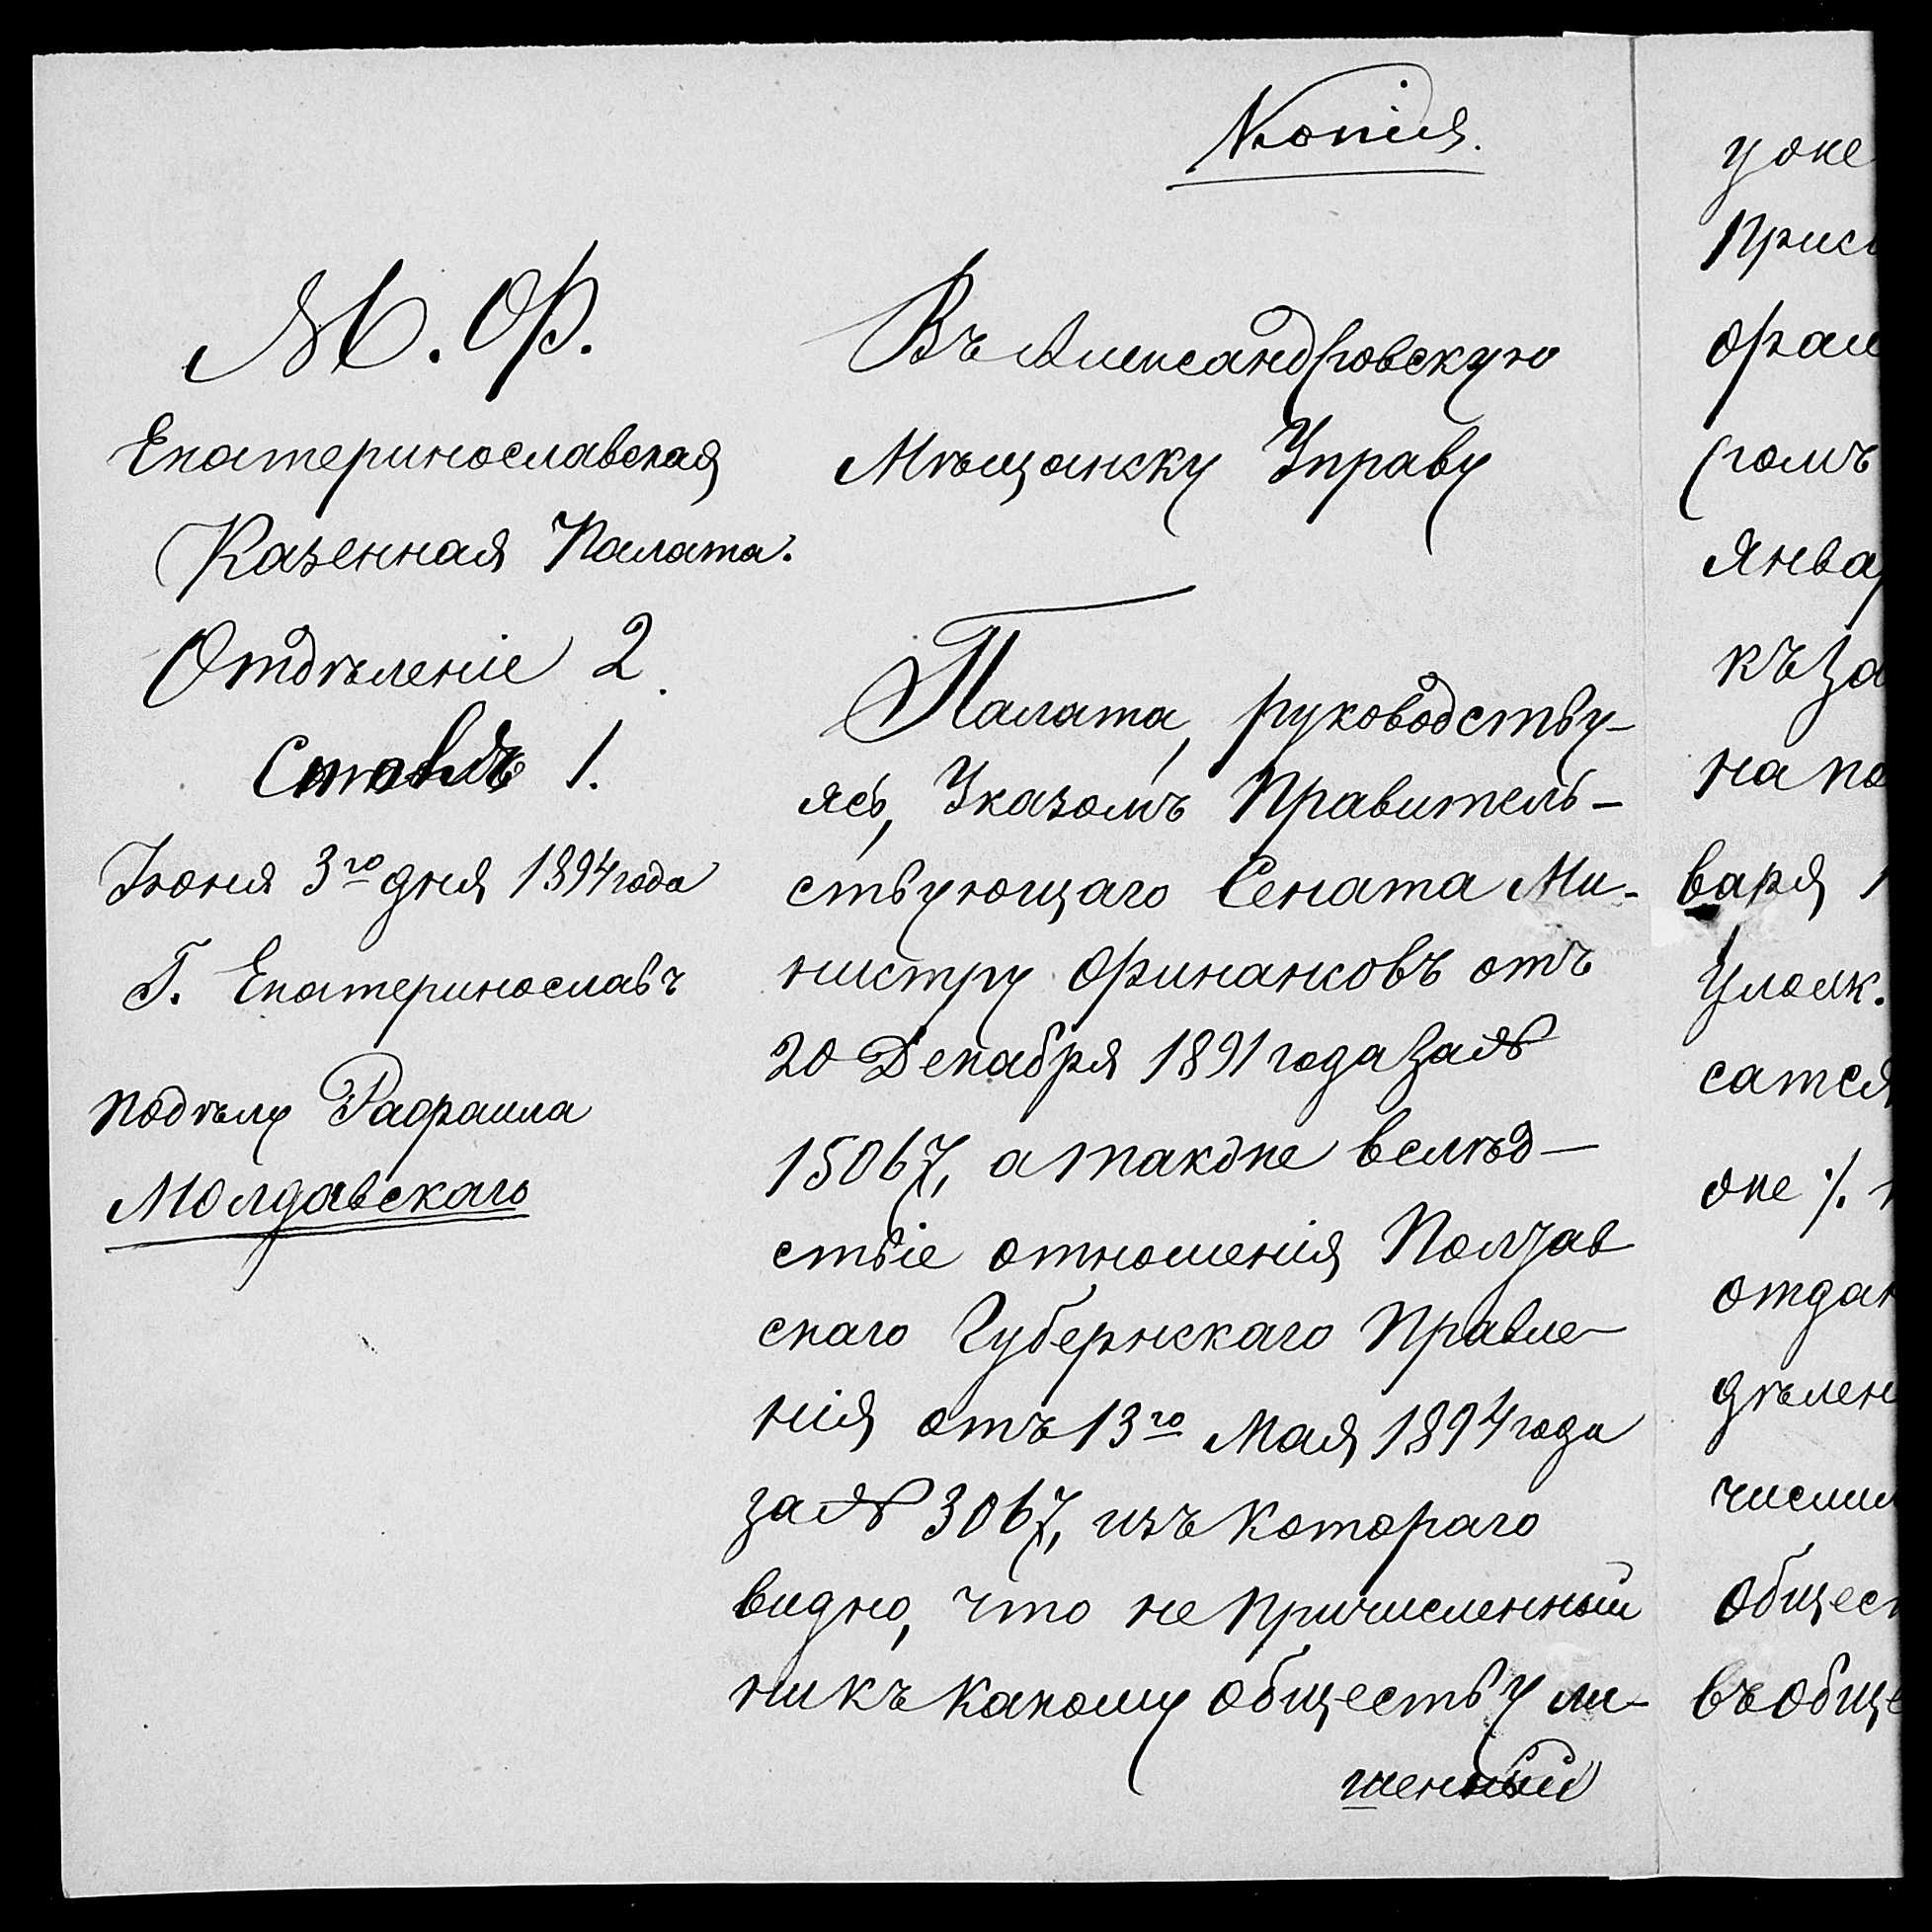 Копія.
М. Ф.
Екатеринославская
Казенная Палата.
Отдѣленіе 2.
Столъ 1.
Іюня 3го дня 1894 года
Г. Екатеринославъ
по дѣлу Рафаила
Молдавскаго
Въ Александровскую
Мѣщанску Управу
Палата, руководству-
ясь, Указомъ Правитель-
ствующаго Сената Ми-
нистру Финансовъ отъ
20 Декабря 1891 года за №
15067, а также вслѣд-
ствіе отношенія Полтав
скаго Губернскаго Правле-
нія отъ 13го Мая 1894 года
за № 3067, изъ котораго
видно, что не причисленный
ни къ какому обществу ли-
шенный
уже
Прис
фам
(гомъ
Янва
къ за
на по
варя 1
Улож.
сатся
же %.
отдан
дѣлен
числи
общес
въ обще